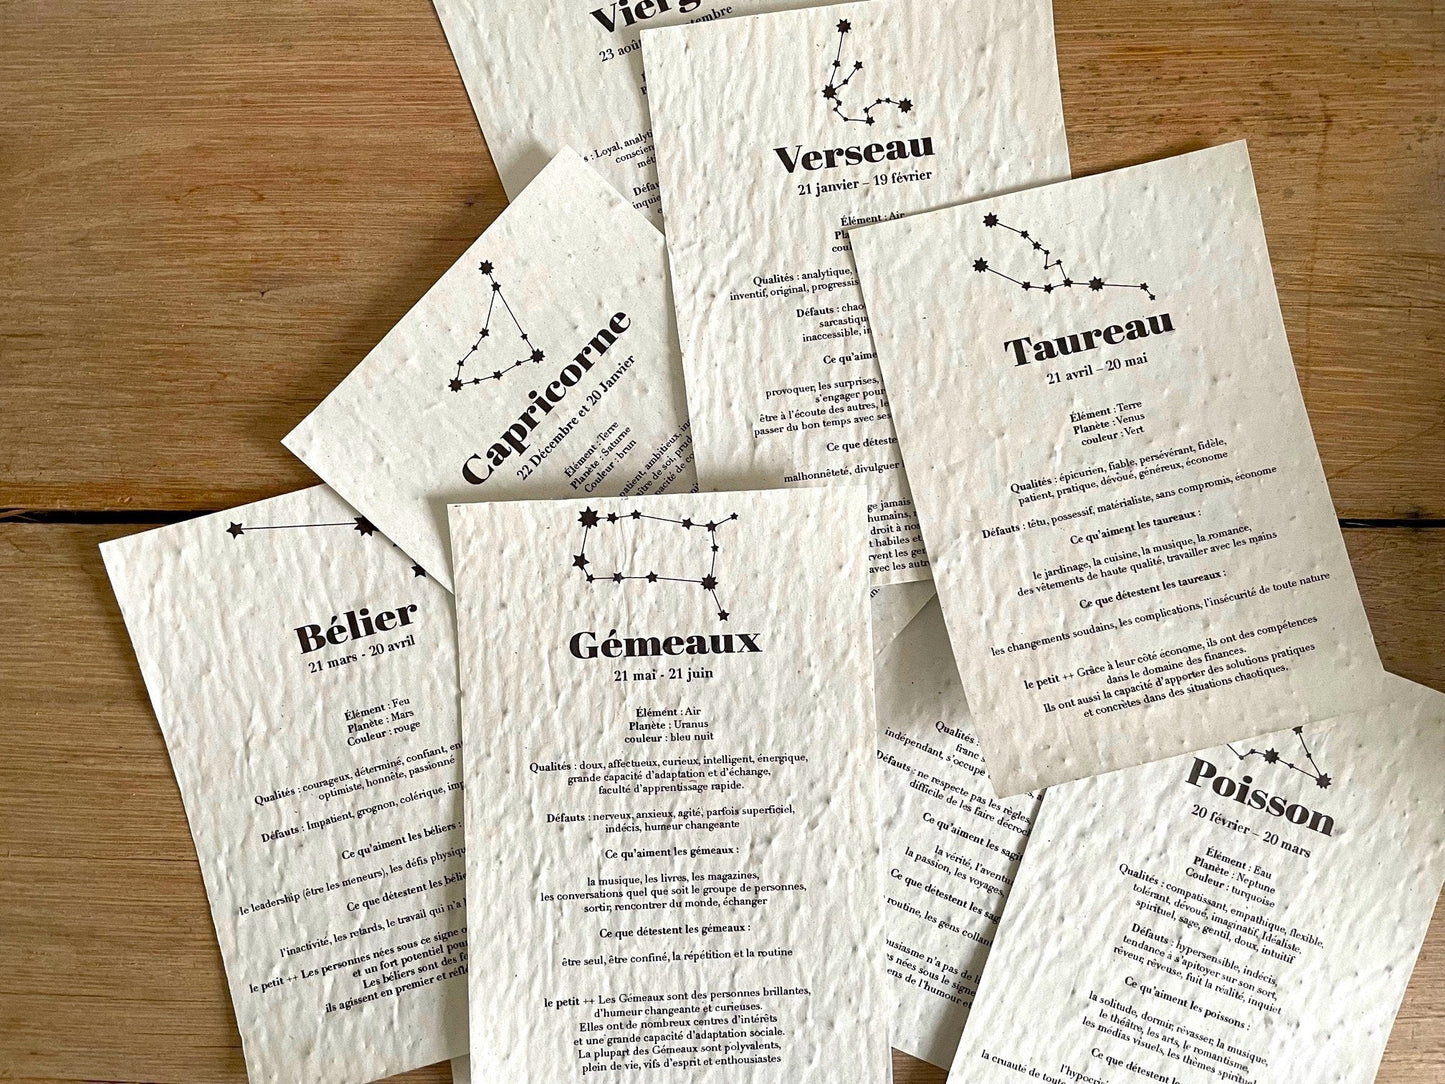 23 août
septembre
: Loyal, analyti
Verseau
21 janvier – 19 février
Élément : Air
Qualités : analytique,
inventif, original, progressis
Défauts : chao
sarcastiqu
inaccessible, i
Ce qu'aime
provoquer, les surprises,
s'engager pour
être à l'écoute des autres, le
passer du bon temps avec ses
Ce que détest
malhonnêteté, divulguer
ge jamais
humains,
droit à no
t habiles et
rvent les ge
avec les autre
Taureau
21 avril – 20 mai
Élément : Terre
Planète : Venus
couleur : Vert
Qualités : épicurien, fiable, persévérant, fidèle,
patient, pratique, dévoué, généreux, économe
Défauts : têtu, possessif, matérialiste, sans compromis, économe
Ce qu'aiment les taureaux :
le jardinage, la cuisine, la musique, la romance,
des vêtements de haute qualité, travailler avec les mains
Ce que détestent les taureaux :
les changements soudains, les complications, l'insécurité de toute nature
le petit ++ Grâce à leur côté économe, ils ont des compétences
dans le domaine des finances.
Ils ont aussi la capacité d'apporter des solutions pratiques
et concrètes dans des situations chaotiques.
Capricorne
22 Décembre et 20 Janvier
Élément : Terre
Planète : Saturne
Couleur : brun
patient, ambitieux, in
ître de soi, prud
apacité de co
Bélier
21 mars - 20 avril
Élément : Feu
Planète : Mars
Couleur : rouge
Qualités : courageux, déterminé, confiant, en
optimiste, honnête, passionné
Défauts : Impatient, grognon, colérique, imp
Ce qu'aiment les béliers :
le leadership (être les meneurs), les défis physiqu
Ce que détestent les bélie
l'inactivité, les retards, le travail qui n'a
le petit ++ Les personnes nées sous ce signe o
et un fort potentiel pour
Les béliers sont des fo
ils agissent en premier et réflé
Gémeaux
21 mai - 21 juin
Élément : Air
Planète : Uranus
couleur : bleu nuit
Qualités : doux, affectueux, curieux, intelligent, énergique,
grande capacité d'adaptation et d'échange,
faculté d'apprentissage rapide.
Défauts : nerveux, anxieux, agité, parfois superficiel,
indécis, humeur changeante
Ce qu'aiment les gémeaux :
la musique, les livres, les magazines,
les conversations quel que soit le groupe de personnes,
sortir, rencontrer du monde, échanger
Ce que détestent les gémeaux :
être seul, être confiné, la répétition et la routine
le petit ++ Les Gémeaux sont des personnes brillantes,
d'humeur changeante et curieuses.
Elles ont de nombreux centres d'intérêts
et une grande capacité d'adaptation sociale.
La plupart des Gémeaux sont polyvalents,
plein de vie, vifs d'esprit et enthousiastes
Qualités :
franc
indépendant, s'occupe
Défauts : ne respecte pas les règles,
difficile de les faire décroc
Ce qu'aiment les sagi
la vérité, l'aventu
la passion, les voyages,
Ce que détestent les sag
routine, les gens collant
ousiasme n'a pas de l
s nées sous le signe
ens de l'humour et
Poisson
20 février – 20 mars
Élément : Eau
Planète : Neptune
Couleur : turquoise
Qualités : compatissant, empathique, flexible,
tolérant, dévoué, imaginatif, Idéaliste,
spirituel, sage, gentil, doux, intuitif
Défauts : hypersensible, indécis,
tendance à s'apitoyer sur son sort,
rêveur, rêveuse, fuit la réalité, inquiet
Ce qu'aiment les poissons :
la solitude, dormir, rêvasser, la musique,
le théâtre, les arts, le romantisme,
les médias visuels, les thèmes spirituel
Ce que détestent le
l'hypocri
la cruauté de toute